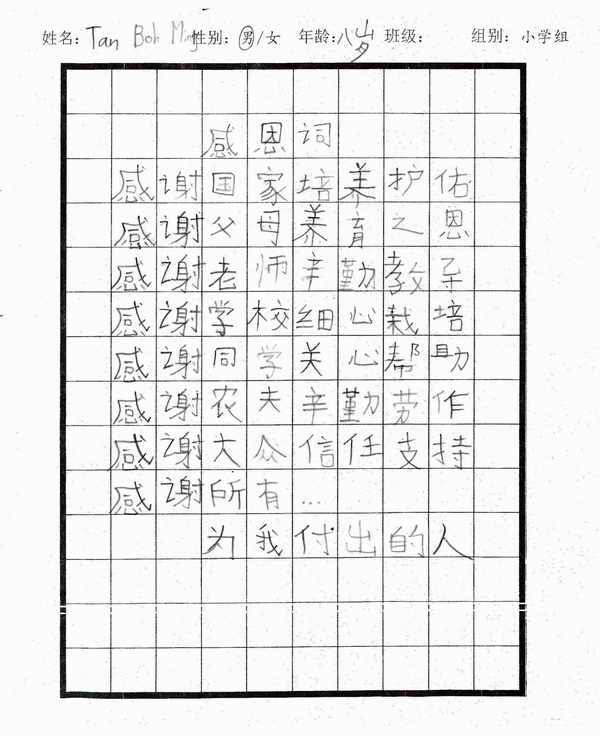 姓名: Tan Boh Ming 性别: 男/女 年龄: 八岁 班级: 组别: 小学组
感恩词
感谢国家培养护佑
感谢父母养育之恩
感谢老师辛勤教导
感谢学校细心栽培
感谢同学关心帮助
感谢农夫辛勤劳作
感谢大众信任支持
感谢所有...
为我付出的人